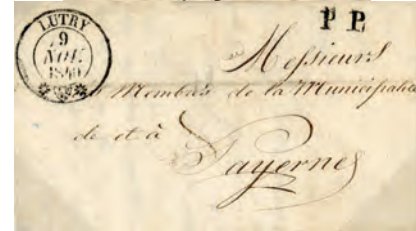 LUTRY
9
NOV.
1840
P P.
Messieurs
Membres de la Municipalité
de et à
Payerne